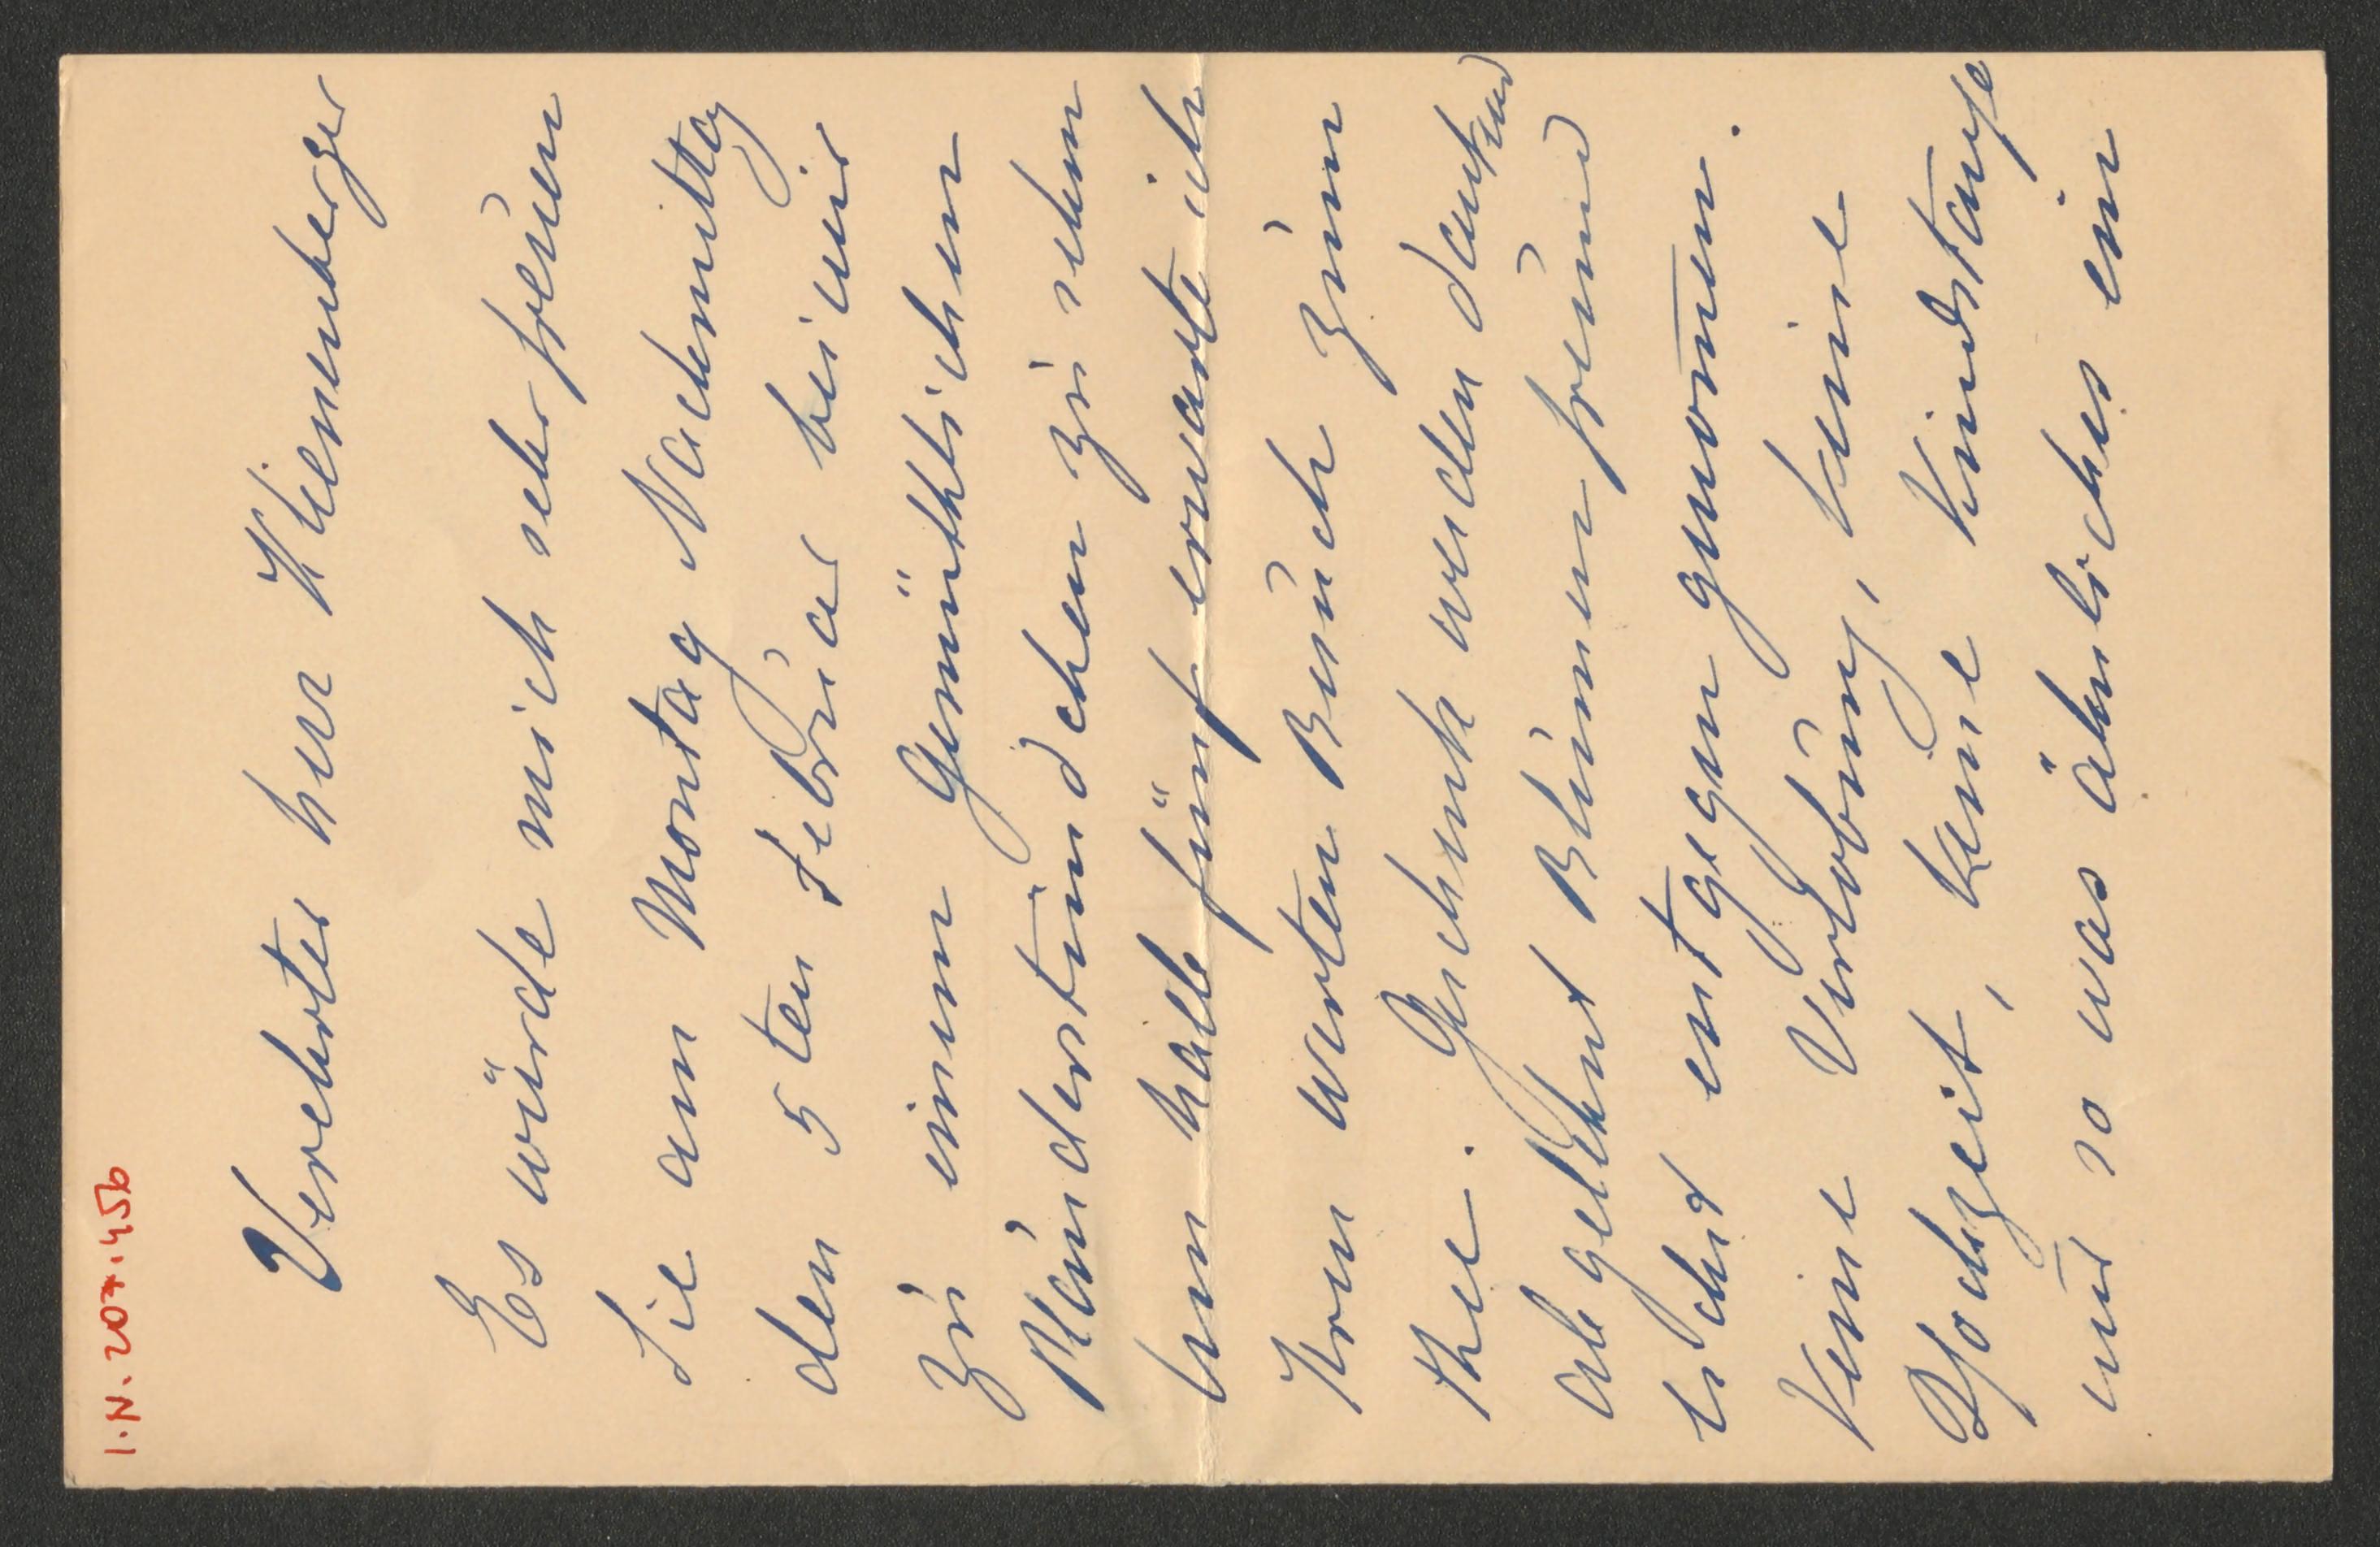 I.N. 207.456
Verehrter herr Kienenberger
Es würde mich sehr freuen
Sie am Montag Nachmittag
den 5ten Februar bei mir
zu einem Gemüthlichen
Plauderstündchen zu sehen
um halb fünf erwarte ich
Iren werten Besuch zum
thee. Geschenk werden dankend
abgelehnt Blumen freund
lichst entgegen genomen.
Keine Verlobung, keine
Hochzeit, keine Kindstaufe
und so was ähnliches ein